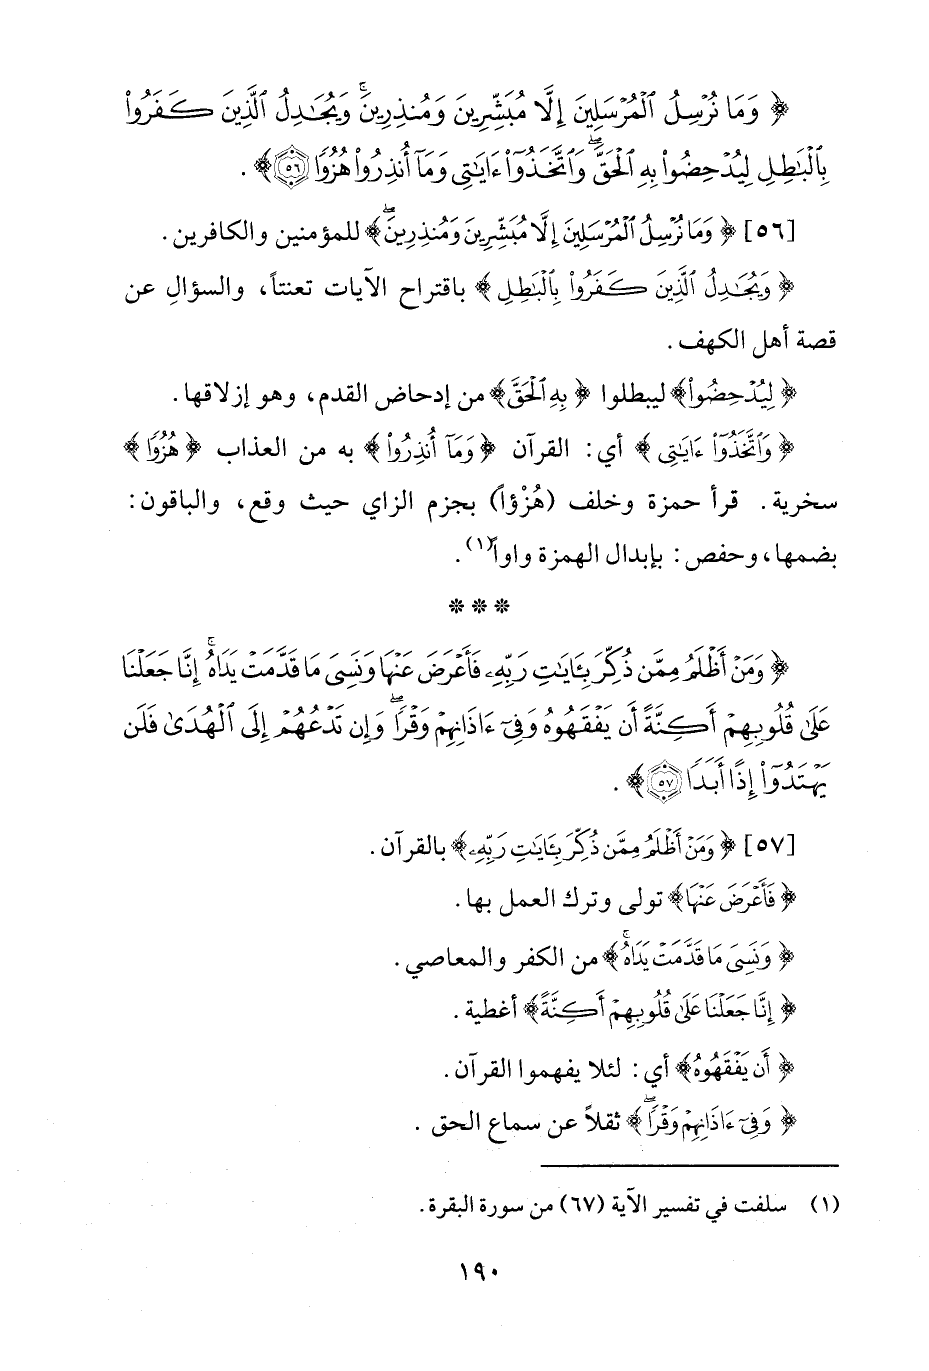 ﴿ وَمَا نُرْسِلُ ٱلْمُرْسَلِينَ إِلَّا مُبَشِّرِينَ وَمُنذِرِينَ ۚ وَيُجَـٰدِلُ ٱلَّذِينَ كَفَرُوا۟
بِٱلْبَـٰطِلِ لِيُدْحِضُوا۟ بِهِ ٱلْحَقَّ ۖ وَٱتَّخَذُوٓا۟ ءَايَـٰتِى وَمَآ أُنذِرُوا۟ هُزُوًا ۝٥٦ ﴾ .
[٥٦] ﴿ وَمَا نُرْسِلُ ٱلْمُرْسَلِينَ إِلَّا مُبَشِّرِينَ وَمُنذِرِينَ ۖ ﴾ للمؤمنين والكافرين .
﴿ وَيُجَـٰدِلُ ٱلَّذِينَ كَفَرُوا۟ بِٱلْبَـٰطِلِ ﴾ باقتراح الآيات تعنتاً، والسؤالِ عن
قصة أهل الكهف .
﴿ لِيُدْحِضُوا۟ ﴾ ليبطلوا ﴿ بِهِ ٱلْحَقَّ ﴾ من إدحاض القدم، وهو إزلاقها .
﴿ وَٱتَّخَذُوٓا۟ ءَايَـٰتِى ﴾ أي: القرآن ﴿ وَمَآ أُنذِرُوا۟ ﴾ به من العذاب ﴿ هُزُوًا ﴾
سخرية. قرأ حمزة وخلف (هُزْؤاً) بجزم الزاي حيث وقع، والباقون:
بضمها، وحفص: بإبدال الهمزة واواً(١).
* * *
﴿ وَمَنْ أَظْلَمُ مِمَّن ذُكِّرَ بِـَٔايَـٰتِ رَبِّهِۦ فَأَعْرَضَ عَنْهَا وَنَسِىَ مَا قَدَّمَتْ يَدَاهُ ۚ إِنَّا جَعَلْنَا
عَلَىٰ قُلُوبِهِمْ أَكِنَّةً أَن يَفْقَهُوهُ وَفِىٓ ءَاذَانِهِمْ وَقْرًا ۖ وَإِن تَدْعُهُمْ إِلَى ٱلْهُدَىٰ فَلَن
يَهْتَدُوٓا۟ إِذًا أَبَدًا ۝٥٧ ﴾ .
[٥٧] ﴿ وَمَنْ أَظْلَمُ مِمَّن ذُكِّرَ بِـَٔايَـٰتِ رَبِّهِۦ ﴾ بالقرآن .
﴿ فَأَعْرَضَ عَنْهَا ﴾ تولى وترك العمل بها .
﴿ وَنَسِىَ مَا قَدَّمَتْ يَدَاهُ ۚ ﴾ من الكفر والمعاصي .
﴿ إِنَّا جَعَلْنَا عَلَىٰ قُلُوبِهِمْ أَكِنَّةً ﴾ أغطية .
﴿ أَن يَفْقَهُوهُ ﴾ أي: لئلا يفهموا القرآن .
﴿ وَفِىٓ ءَاذَانِهِمْ وَقْرًا ۖ ﴾ ثقلاً عن سماع الحق .
(١) سلفت في تفسير الآية (٦٧) من سورة البقرة.
١٩٠